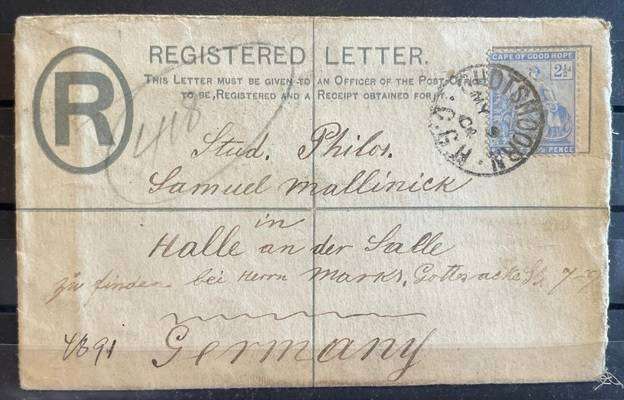 REGISTERED LETTER.
THIS LETTER MUST BE GIVEN TO AN OFFICER OF THE POST OFFICE
TO BE REGISTERED AND A RECEIPT OBTAINED FOR IT.
R
CAPE OF GOOD HOPE
2½d
PENCE
OUDTSHOORN
MY
C.G.H.
Stud. Philos.
Samuel Mallinick
in
Halle an der Salle
zu finden bei Herrn Marks, Gottesacker 7-9
Germany